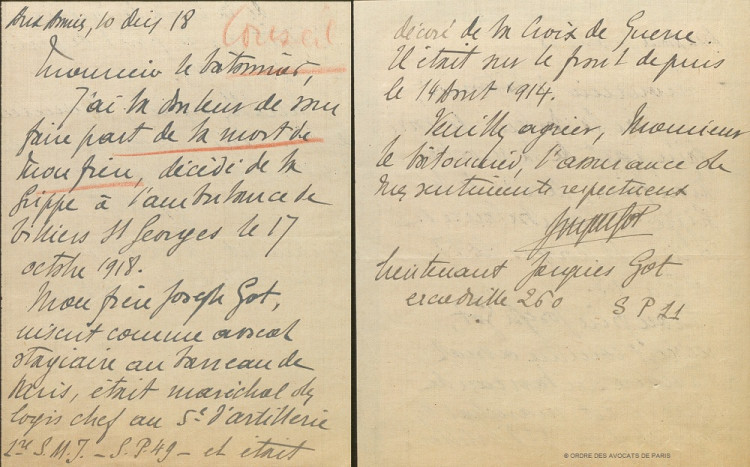 Aux Armées, 10 déc 18
Conseil
Monsieur le bâtonnier,
J'ai la douleur de vous
faire part de la mort de
mon frère, décédé de la
grippe à l'ambulance de
Villiers St Georges le 17
octobre 1918.
Mon frère Joseph Got,
inscrit comme avocat
stagiaire au barreau de
Paris, était maréchal des
logis chef au 5e d'artillerie
S.M.I. - S.P. 49 - et était
décoré de la Croix de Guerre.
Il était sur le front depuis
le 14 Aout 1914.
Veuillez agréer, Monsieur
le bâtonnier, l'assurance de
mes sentiments respectueux
Lieutenant Jacques Got
escadrille 260 S P 21
© ORDRE DES AVOCATS DE PARIS